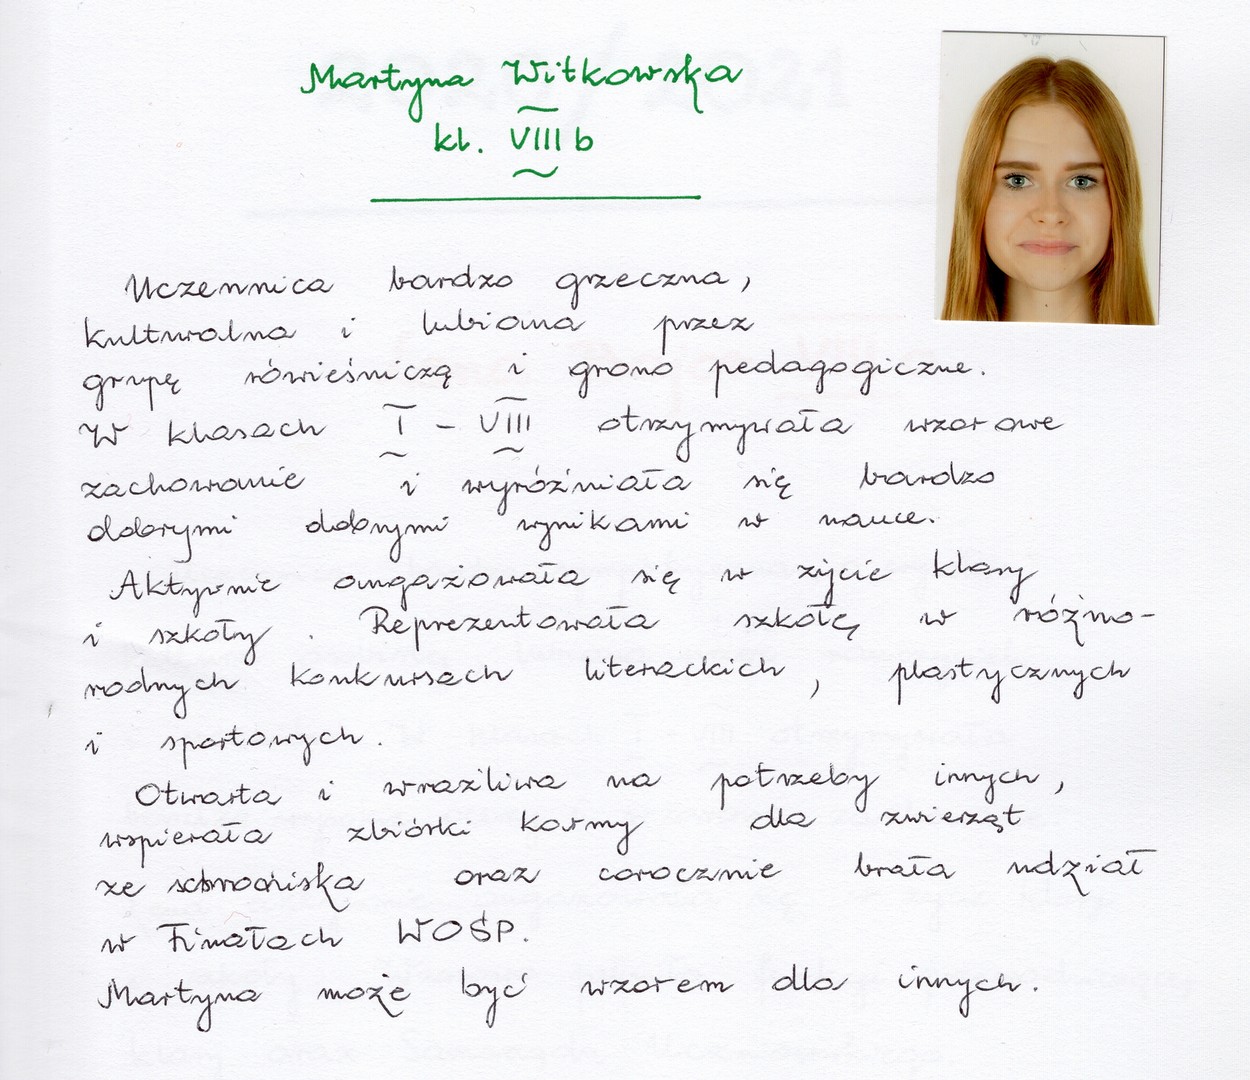 Martyna Witkowska
kl. VIII b
Uczennica bardzo grzeczna,
kulturalna i lubiana przez
grupę rówieśniczą i grono pedagogiczne.
W klasach I - VIII otrzymywała wzorowe
zachowanie i wyróżniała się bardzo
dobrymi dobrymi wynikami w nauce.
Aktywnie angażowała się w życie klasy
i szkoły. Reprezentowała szkołę w różno-
rodnych konkursach literackich, plastycznych
i sportowych.
Otwarta i wrażliwa na potrzeby innych,
wspierała zbiórki karmy dla zwierząt
ze schroniska oraz corocznie brała udział
w Finałach WOŚP.
Martyna może być wzorem dla innych.